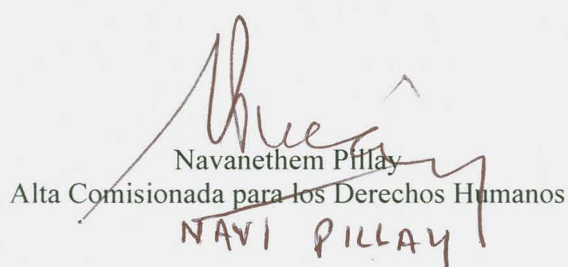 Navanethem Pillay
Alta Comisionada para los Derechos Humanos
NAVI PILLAY